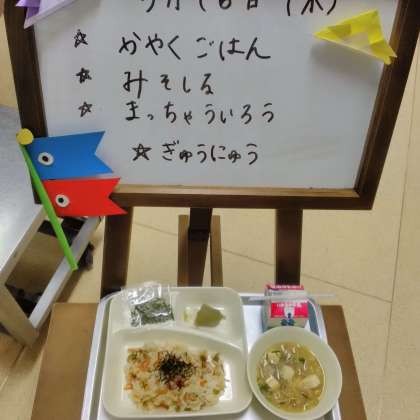 5月16日(木)
☆ かやくごはん
☆ みそしる
☆ まっちゃういろう
☆ ぎゅうにゅう